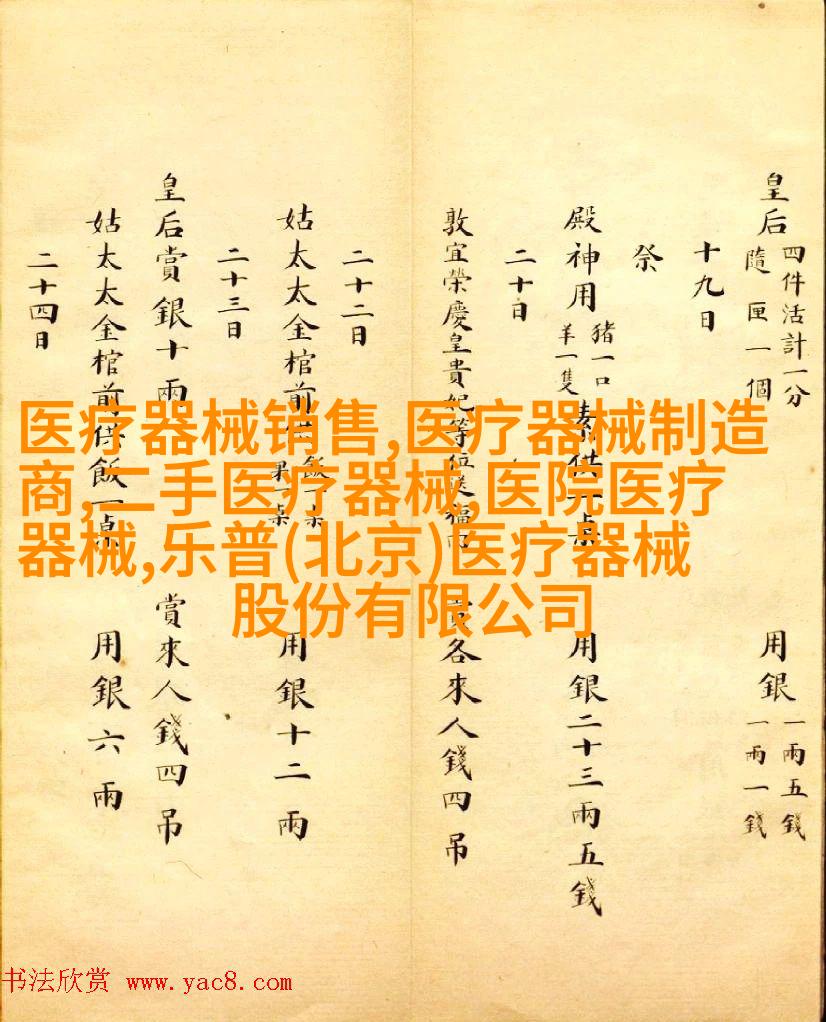 皇后
四件活計一分
隨匣一個
用銀
一兩五錢
一兩一錢
十九日
祭
殿神用
豬一口
羊一隻
素供一桌
用銀二十三兩五錢
二十日
敦宜榮慶皇貴妃等位送
賞各來人錢四吊
二十二日
姑太太金棺前供
飯一桌
果一桌
用銀十二兩
二十三日
皇后賞銀十兩
賞來人錢四吊
姑太太金棺前供飯一桌
用銀六兩
二十四日
医疗器械销售,医疗器械制造
商,二手医疗器械,医院医疗
器械,乐普(北京)医疗器械
股份有限公司
书法欣赏 www.yac8.com